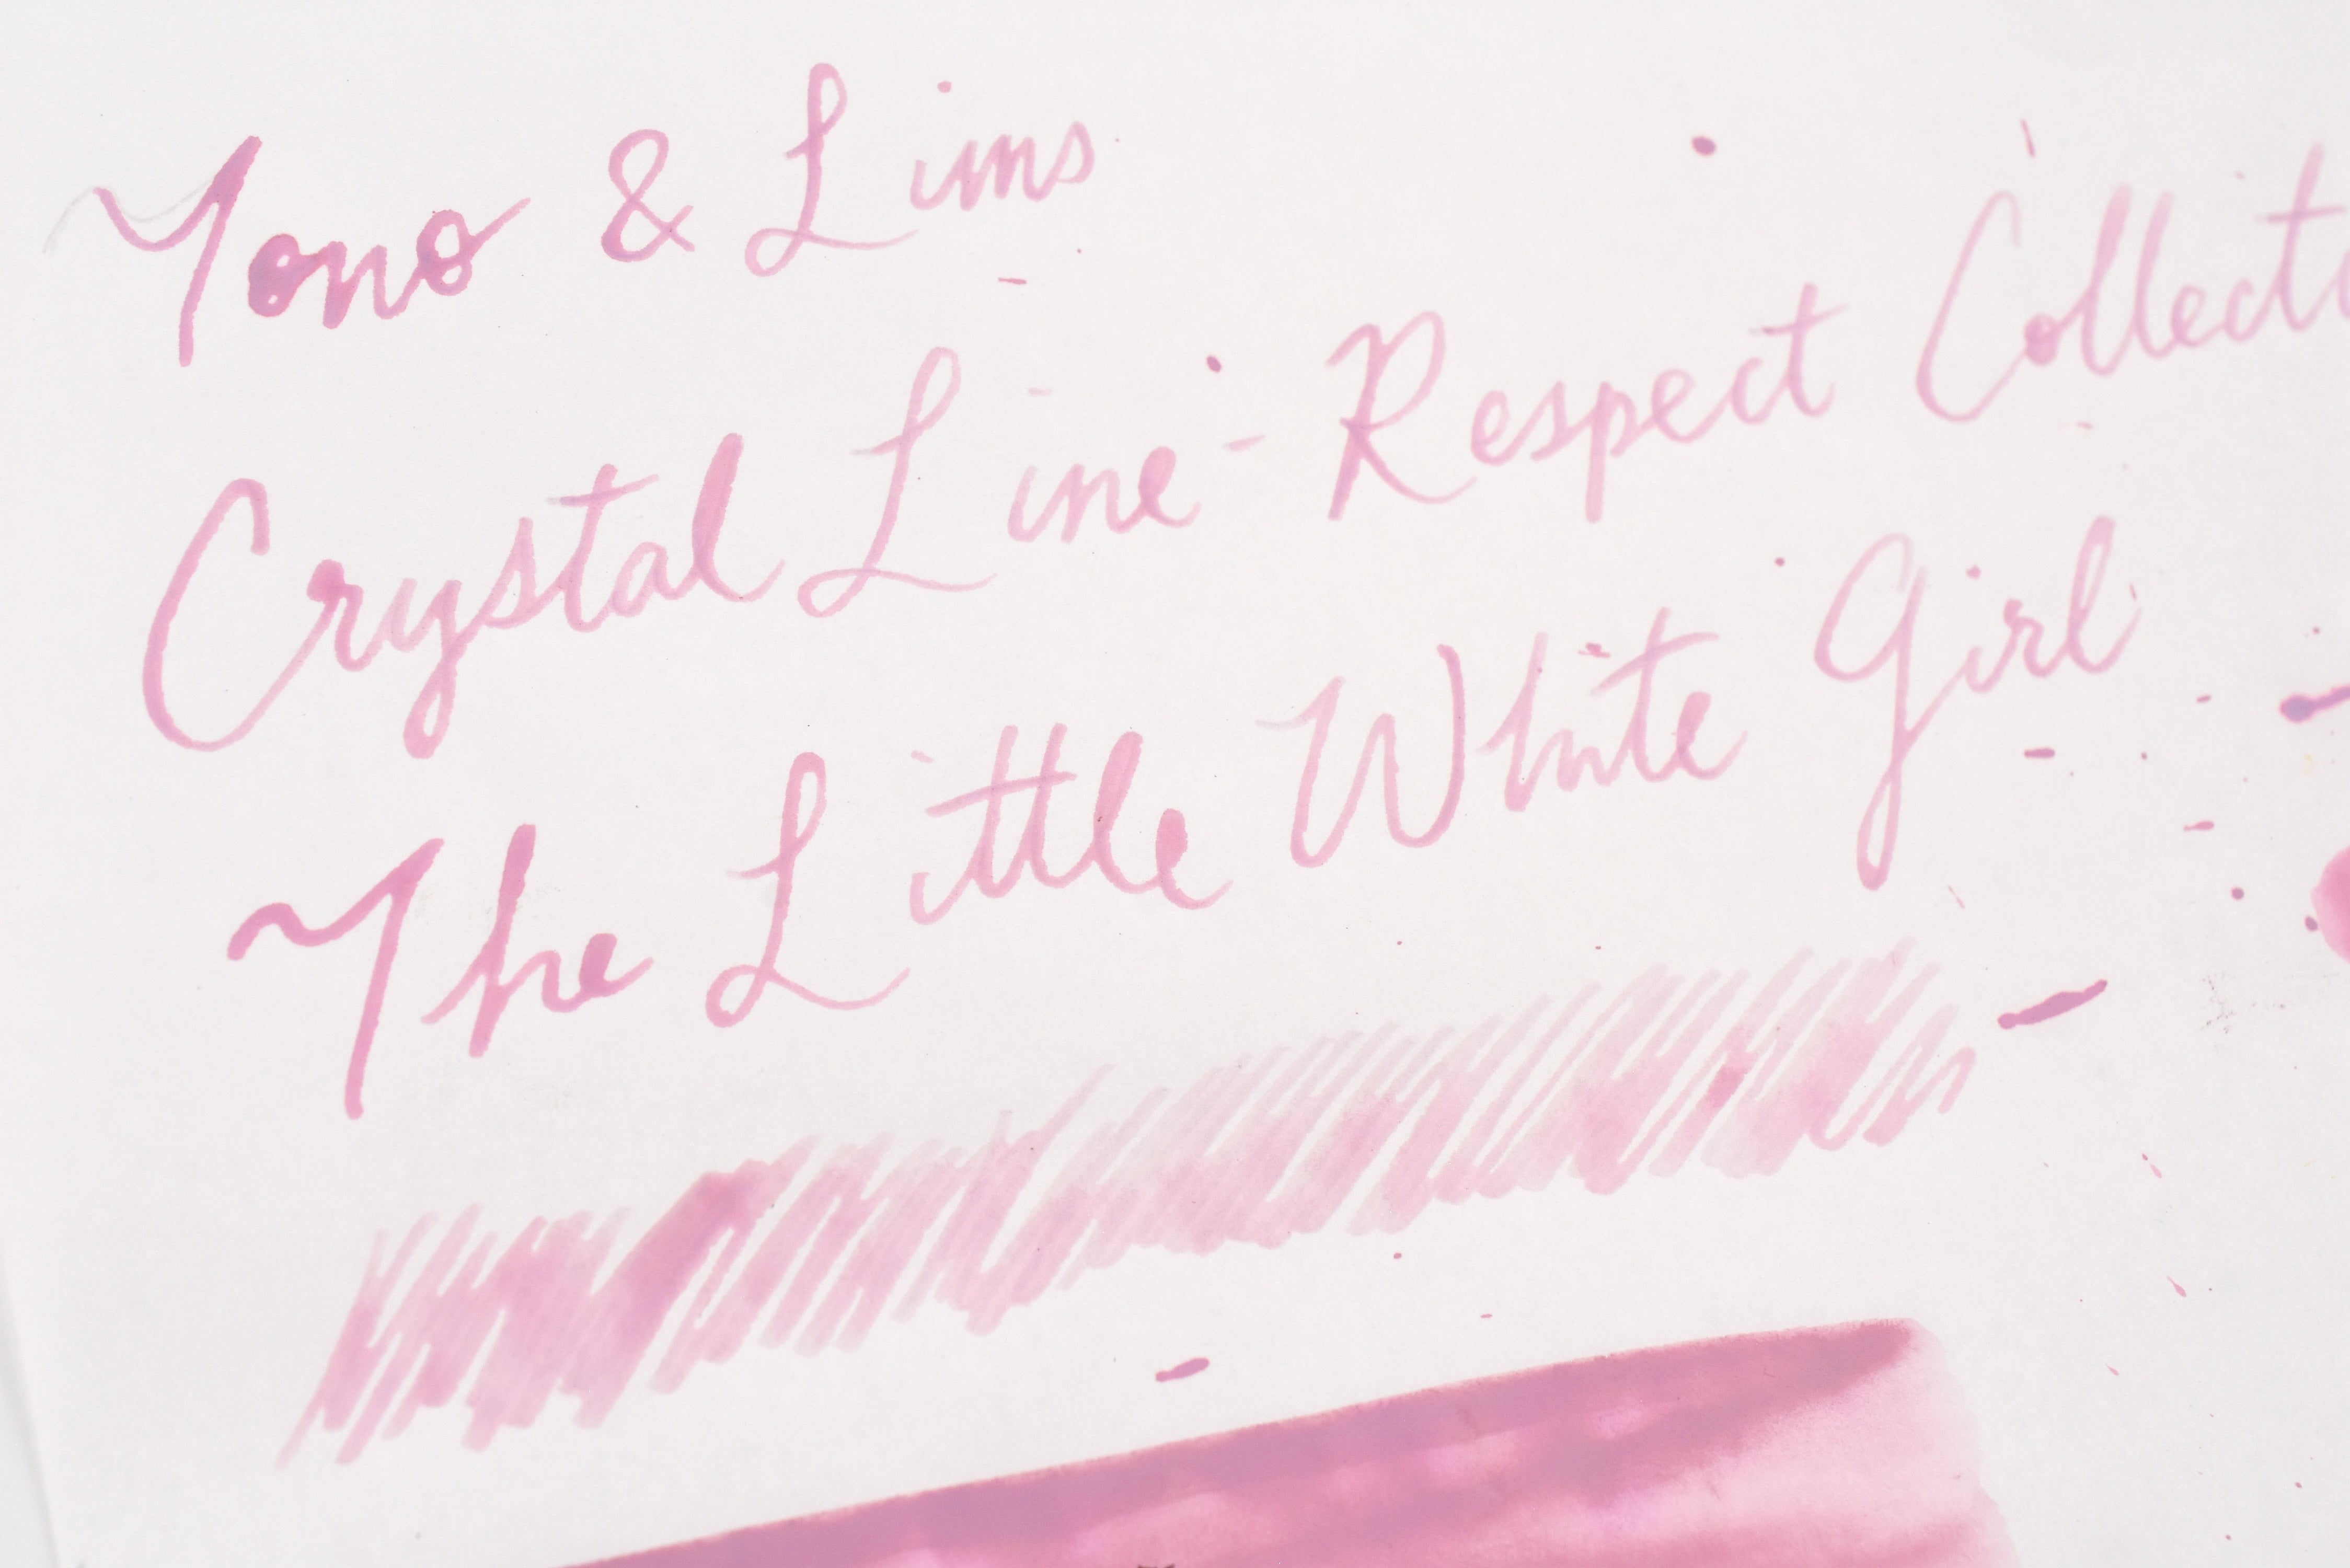 Tono & Lims
Crystal Line - Respect Collecti
The Little White Girl